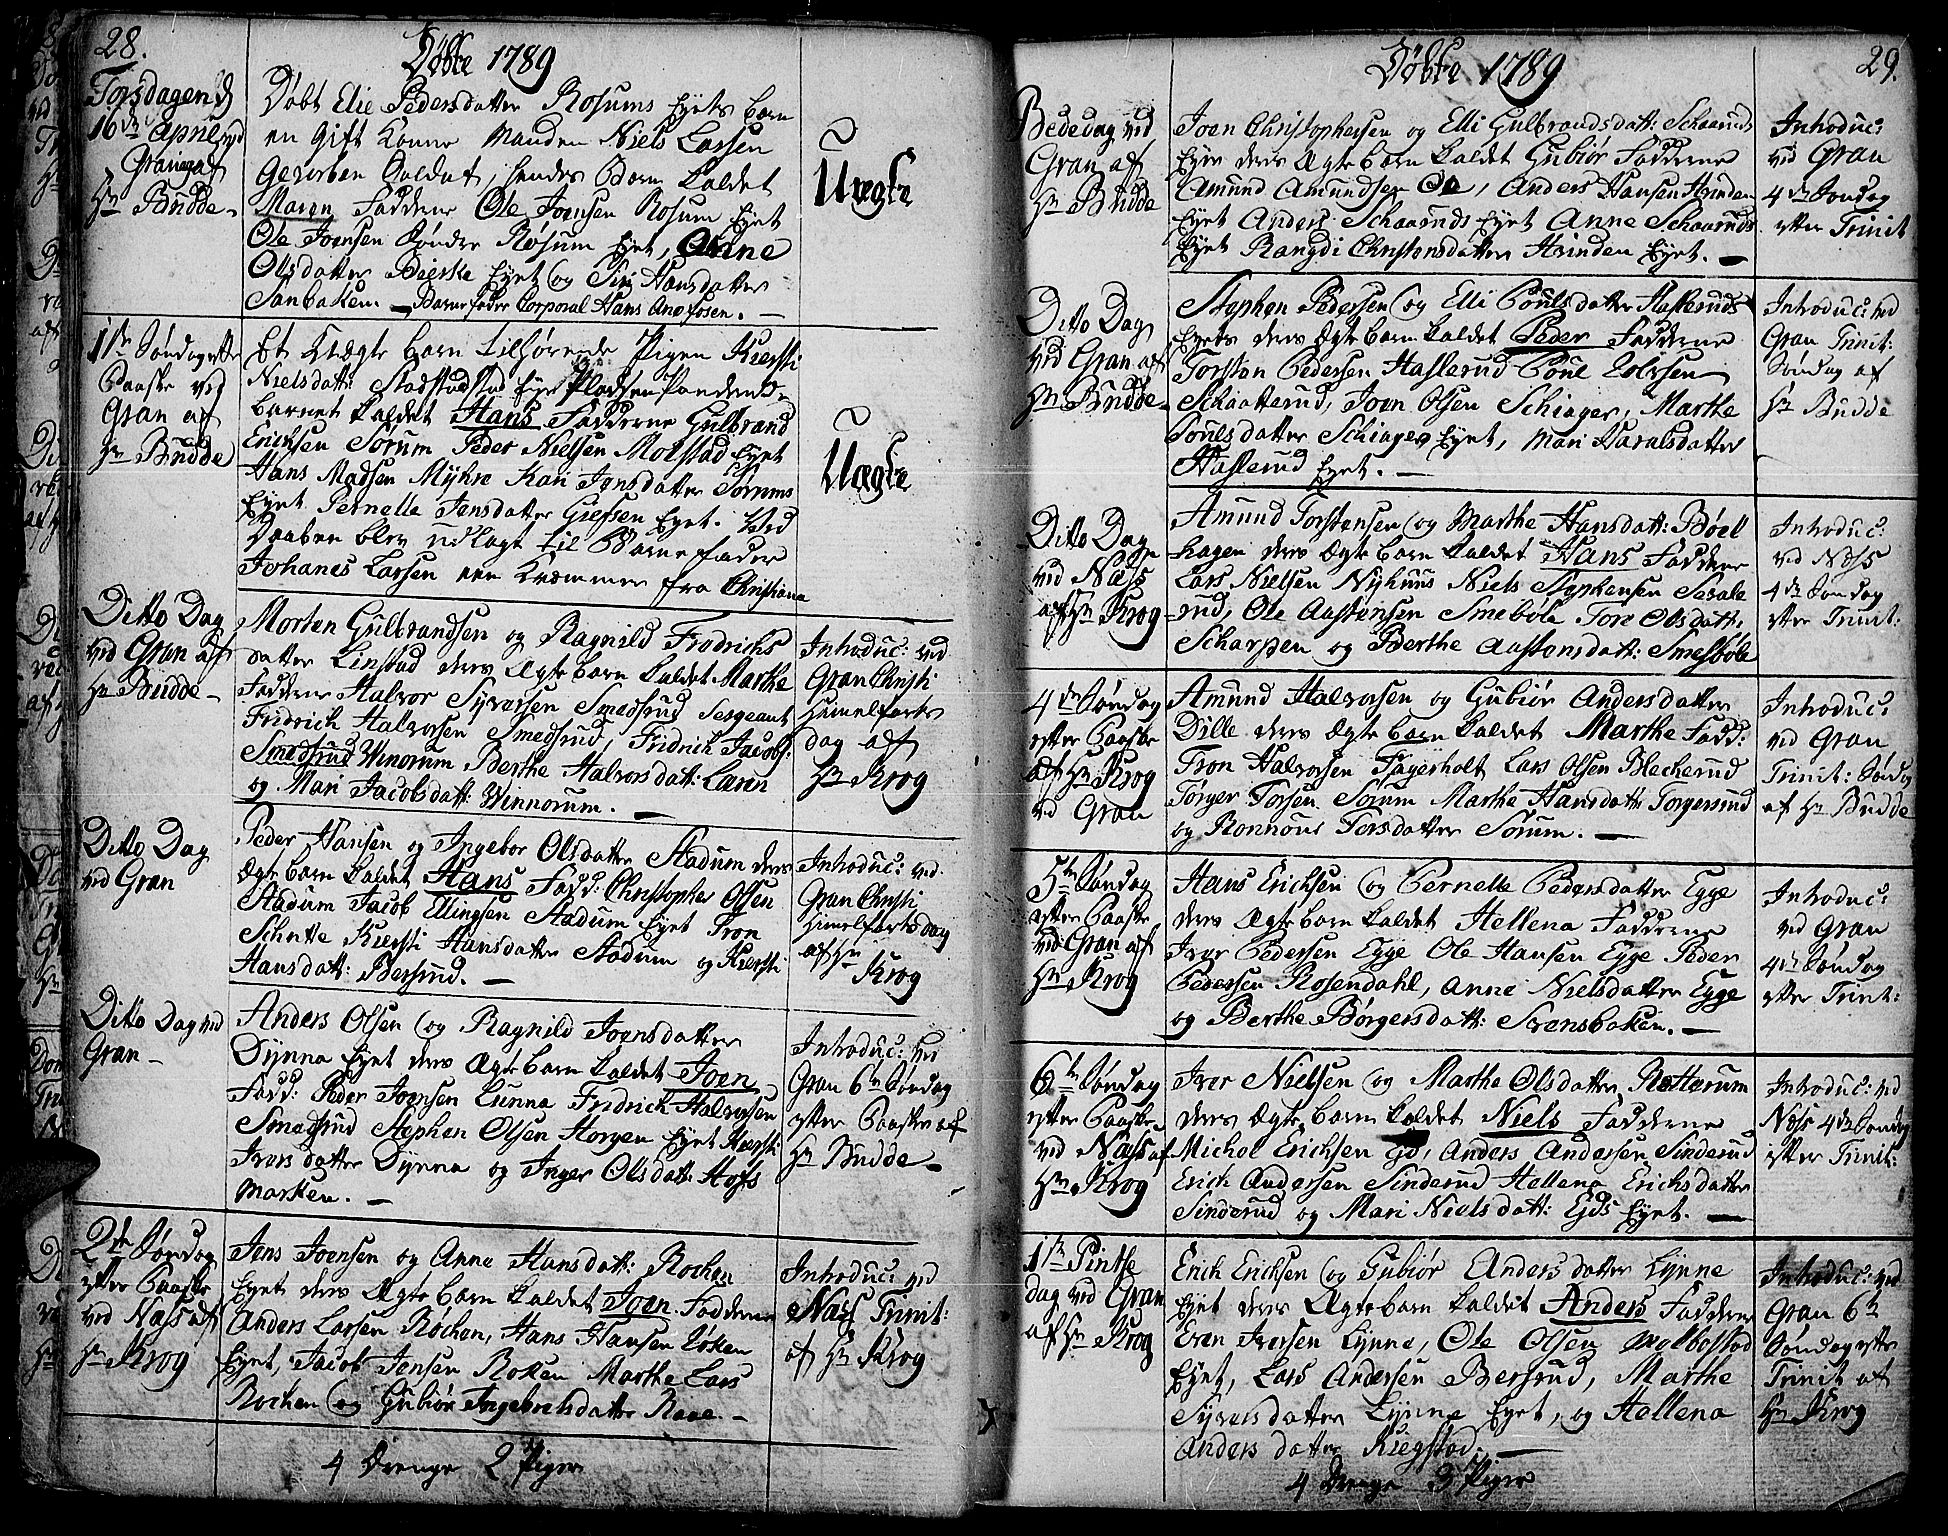 28.
Døbte 1789
Torsdagen d
16de April ved
Gran af
Hr Budde
Døbt Elie Pedersdatter Rosums Eyets barn
en Gift Konne Manden Niels Larsen
Geworben Soldat, hendes Barn kaldet
Maren Fadderne Ole Joensen Rosum Eyet
Ole Joensen Søndre Rosum Eyet, Anne
Olsdatter Bierke Eyet og Siri Hansdatter
Sanbaken. Barnefader Corporal Hans
Uægte
1ste Søndag efter
Paaske ved
Gran af
Hr Budde
Et Uægte barn tilhørende Pigen Kiersti
Nielsdatt: Stadstad Eye Pladsen
barnet kaldet Hans Fadderne Gulbrand
Erichsen Sorum Peder Nielsen Molstad Eyet
Hans Madsen Myhre Kari Jensdatter Sorums
Eyet Pernelle Jensdatter Giefsen Eyet. Ved
Daaben blev udlagt til Barne fader
Johanes Larsen en Kræmmer fra Christiana
Uægte
Ditto Dag
ved Gran af
Hr Budde
Morten Gulbrandsen og Ragnild Fredrichs
datter Linstad deres Ægte barn kaldet Marthe
Fadderne Halvor Syversen Smedsrud Sergeant
Fridrich Halvorsen Smedsrud, Fridrich Jacobs:
Smedsrud Winorum Berthe Halvorsdatt: Laren
og Mari Jacobsdatt: Winnorum.
Introduc: ved
Gran Christi
Himelfarts
dag af
Hr Krog
Ditto Dag
ved Gran
Peder Hansen og Ingebor Olsdatter Stadum deres
Ægte barn kaldet Hans Fadd: Christopher Olsen
Stadum Jacob Ellingsen Stadum Eyet Tron
Schutte Kiersti Hansdatter Stadum og Kiersti
Hansdatt: Bersrud.
Introduc: ved
Gran Christi
Himelfarts dag
af Hr
Krog
Ditto Dag ved
Gran
Anders Olsen og Ragnild Joensdatter
Dynna Eyet deres Ægte barn kaldet Joen
Fadd: Peder Joensen Lunna Fridrich Halvorsen
Smedsrud Stephen Olsen Horgen Eyet Kiersti
Iversdatter Dynna og Inger Olsdatt: Hofs
marken.
Introduc: ved
Gran 6te Søndag
efter Paaske af
Hr Budde
2den Søndag
efter Paaske
ved Næss af
Hr Krog
Jens Joensen og Anne Hansdatt: Rochen
Eyet deres Ægte barn kaldet Joen Fadderne
Anders Larsen Rochen, Hans Hansen Løken
Eyet, Jacob Jensen Roken Marthe Lars
Rochen og Gubiør Ingebretsdatter
Introduc: ved
Næss Trinit:
af Hr Krog
4 Drenge 2 Piger
Døbte 1789
29.
Bededag ved
Gran af
Hr Budde
Joen Christophersen og Elli Gulbrandsdatt: Schaarud
Eyes deres Ægte barn kaldet Gubiør Fadderne
Amund Amundsen Anders Hansen Hvinden
Eyet Anders Schaaruds Eyet Anne Schaaruds
Eyet Rangdi Christensdatter Hvinden Eyet.
Introduc:
ved Gran
4de Søndag
efter Trinit
Ditto Dag
ved Gran af
Hr Budde
Stephen Pedersen og Elli Poulsdatter Haslerud
Eyets deres Ægte barn kaldet Peder Fadderne
Torsten Pedersen Haslerud Poul
Schaatterud, Joen Olsen Schiager, Marthe
Poulsdatter Schiager Eyet, Mari Haralsdatter
Haslerud Eyet.
Introduc: ved
Gran Trinit:
Søndag af
Hr Budde
Ditto Dag
ved Næss
af Hr Krog
Amund Torstensen og Marthe Hansdatt: Bøell
hagen deres Ægte barn kaldet Hans Fadderne
Lars Nielsen Nyhuus Niels Stephensen
rud, Ole Aastensen Smebøle Tore Olsdatt:
Scharpen og Berthe Aastensdatt: Smesbøle
Introduc:
ved Næss
4de Søndag
efter Trinit:
4de Søndag
efter Paaske
af Hr Krog
ved Gran
Amund Halvorsen og Gubiør Andersdatter
Dille deres Ægte barn kaldet Marthe Fadd:
Tron Halvorsen Fagerholt Lars Olsen Bleckerud
Torger Torsen Sorum Marthe Hansdatt: Torgersrud
og Ronnoue Torsdatter Sorum.
Introduc:
ved Gran
Trinit: Søndag
af Hr Budde
5te Søndag
efter Paaske
ved Gran af
Hr Krog
Hans Erichsen og Pernelle Pedersdatter Egge
deres Ægte barn kaldet Hellena Fadderne
Iver Pedersen Egge Ole Hansen Egge Peder
Pedersen Rosendahl, Anne Nielsdatter Egge
og Berthe Børgersdatt: Svensbaken.
Introduc:
ved Gran
4de Søndag
efter Trinit:
6te Søndag
efter Paaske
ved Næss af
Hr Krog
Iver Nielsen og Marthe Olsdatter Rotterum
deres Ægte barn kaldet Niels Fadderne
Michel Erichsen Eid, Anders Andersen Sinderud
Erich Andersen Sinderud Hellena Erichsdatter
Sinderud og Mari Nielsdatt: Eids Eyet.
Introduc: ved
Næss 4de Søndag
efter Trinit:
1ste Pintse
dag ved Gran
af Hr Krog
Erich Erichsen og Gubiør Andersdatter Lynne
Eyet deres Ægte barn kaldet Anders Fadderne
Even Iversen Lynne, Ole Olsen Molbestad
Eyet, Lars Andersen Bersrud, Marthe
Syversdatter Lynne Eyet, og Hellena
Andersdatter Kiegstad.
Introduc: ved
Gran 6te
Søndag efter
Trinit af
Hr Krog
4 Drenge 3 Piger